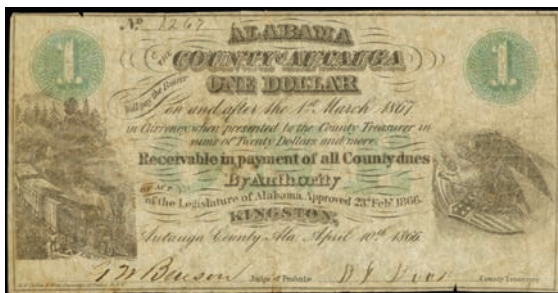 No 1267
ALABAMA
1 1
THE
COUNTY OF AUTAUGA
ONE DOLLAR
Will pay the Bearer
on and after the 1st March 1867
in Currency when presented to the County Treasurer in
sums of Twenty Dollars and more.
Receivable in payment of all County dues
By Authority
OF ACT
of the Legislature of Alabama. Approved 23d Feby. 1866.
KINGSTON,
Autauga County Ala. April 10th 1866
Judge of Probate County Treasurer